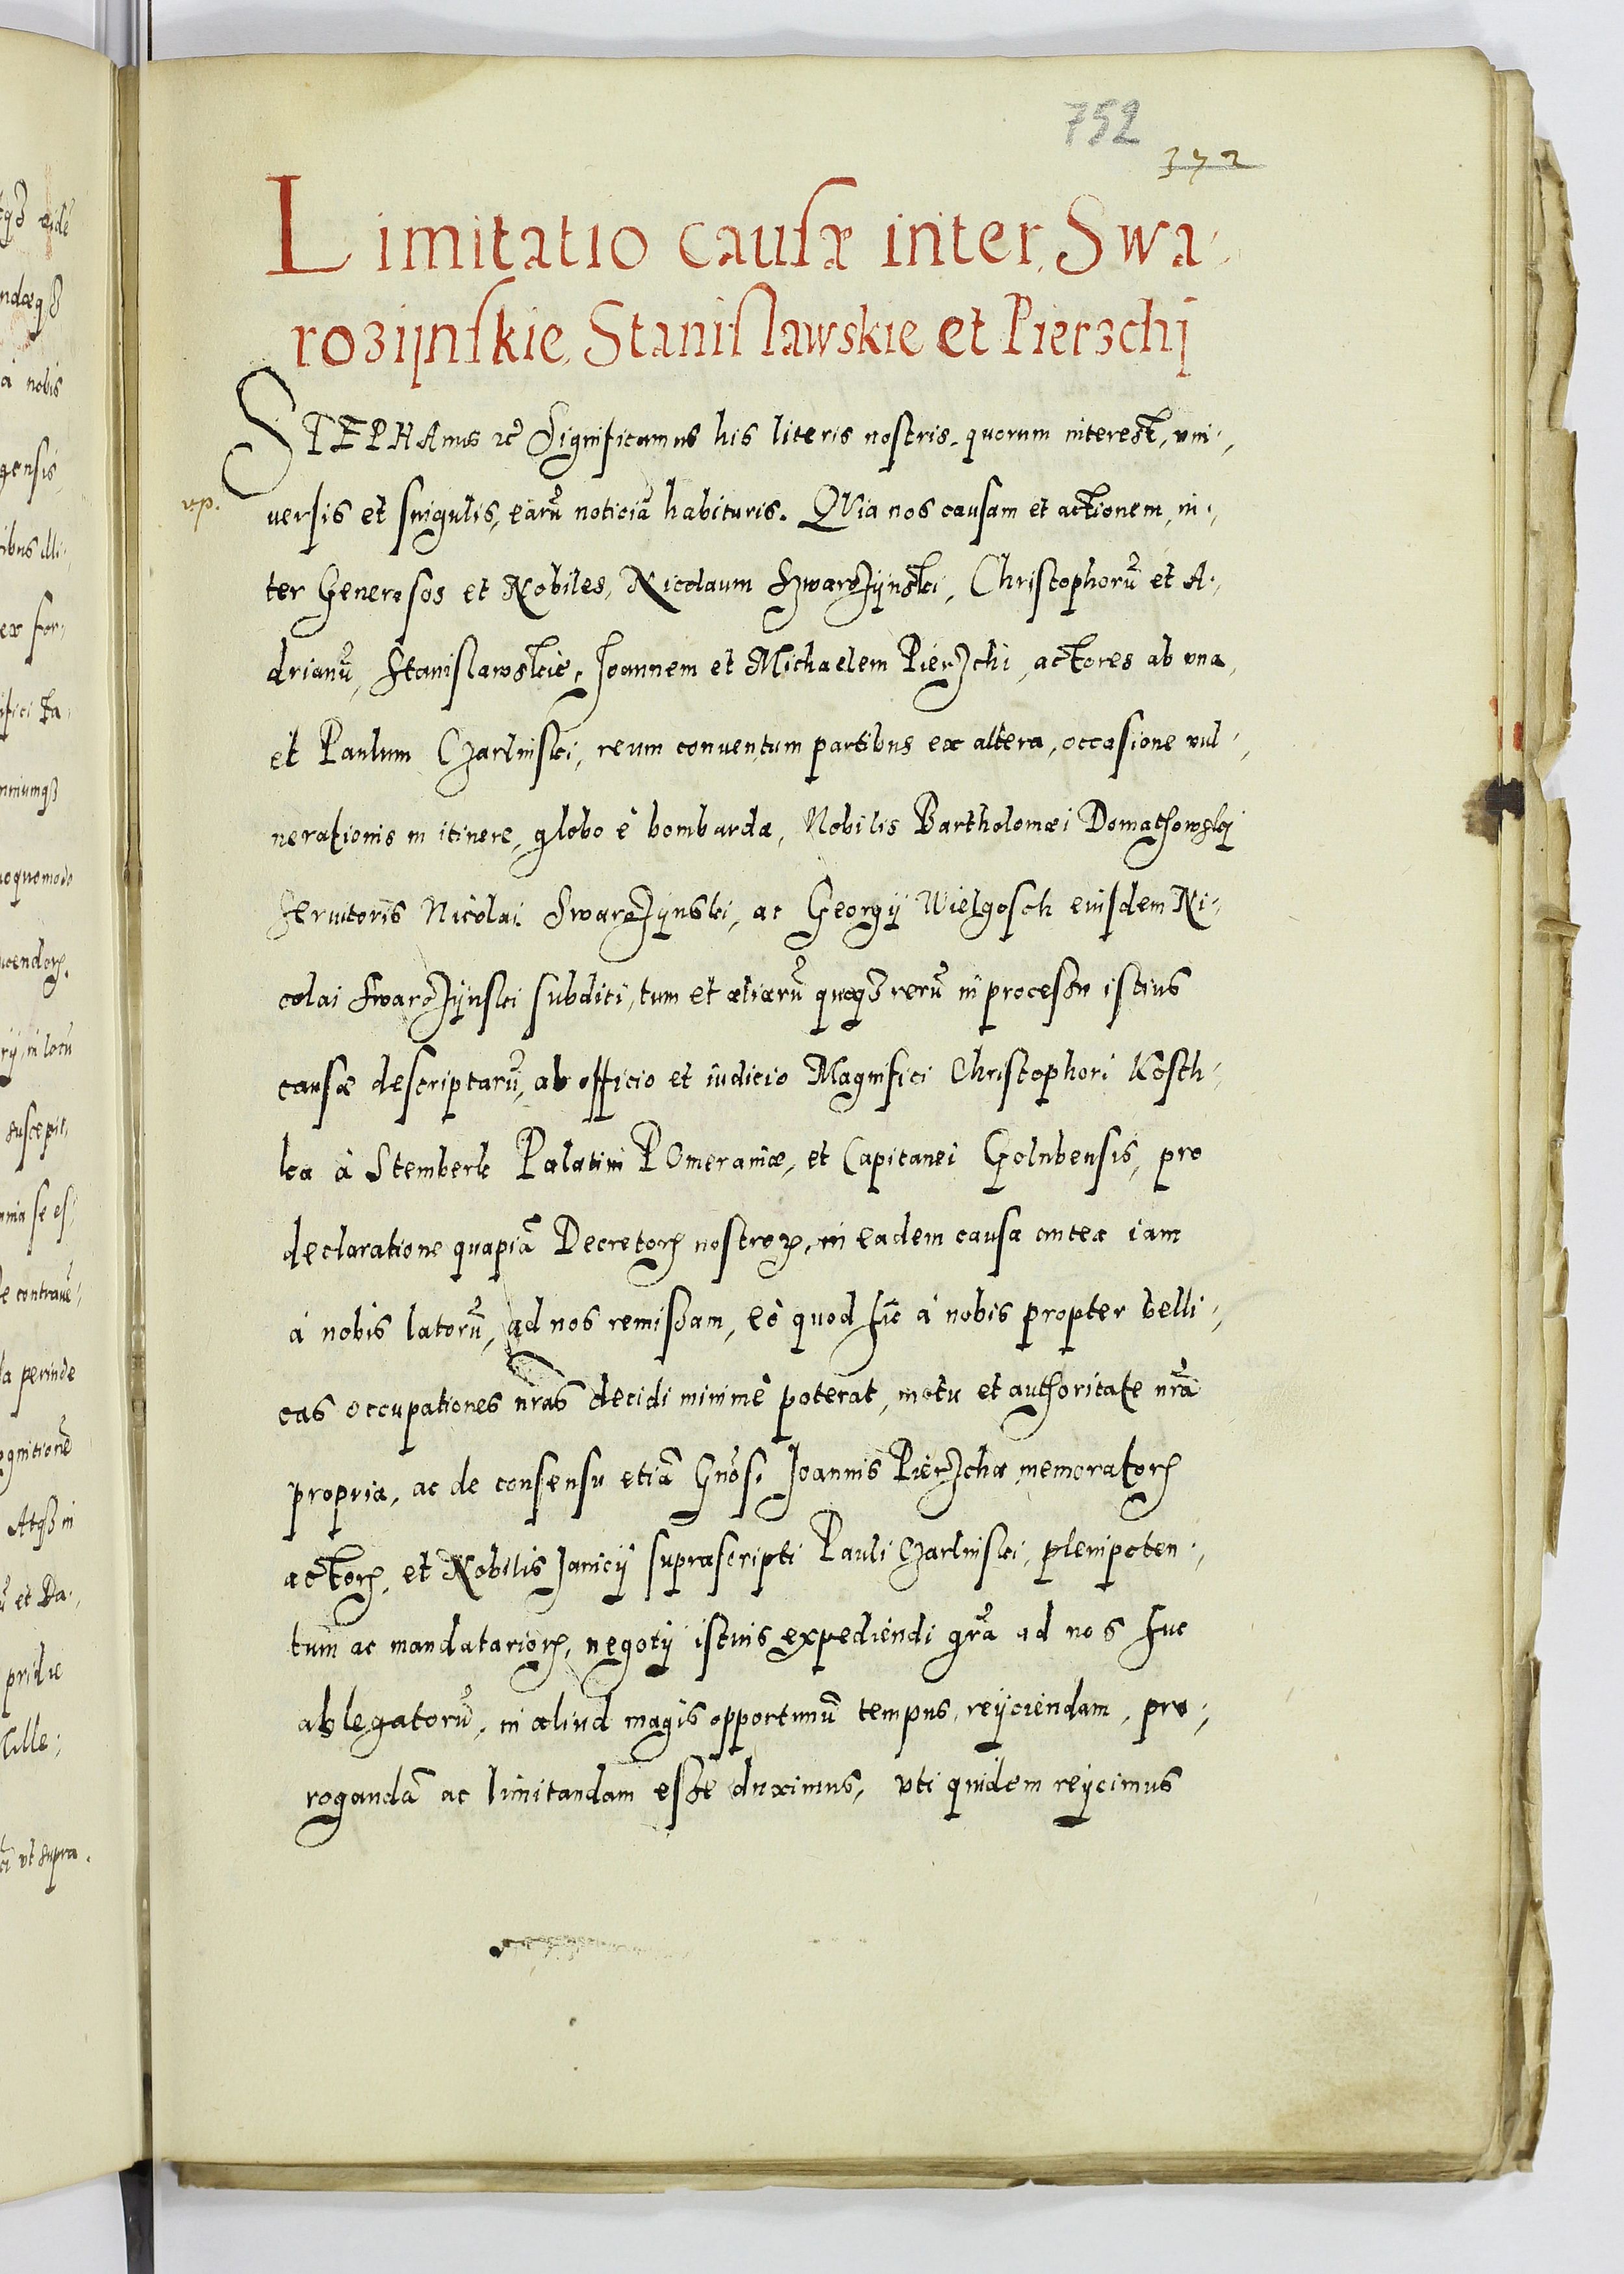 752
372
Limitatio causæ inter Swa-
rozijnskie, Stanislawskie et Pierzchj
STEPHAnus ꝛc̃ Significamus his literis nostris, quorum interest, vni-
vp.
uersis et singulis, earũ noticiã habituris. QVia nos causam et actionem, in-
ter Generosos et Nobiles, Nicolaum Szwarozijnski, Christophorũ et A-
drianũ, Stanislawskie, Joannem et Michaelem Pierzchi, actores ab vna,
et Paulum Czarlinski, reum conuentum partibus ex altera, occasione vul-
nerationis in itinere, globo è bombarda, Nobilis Bartholomæi Domathowskj
Seruitoris Nicolai Swarozijnski, ac Georgij Wielgosch eiusdem Ni-
colai Swarozijnski subditi, tum et aliarũ quoqȝ rerũ in processu istius
causæ descriptarũ, ab officio et iudicio Magnifici Christophori Kosth-
ka à Stemberk Palatini POmeraniæ, et Capitanei Golubensis, pro
declaratione quapiã Decretorꝝ nostrorꝝ, in eadem causa antea iam
à nobis latorũ, ad nos remissam, eò quod sic à nobis propter belli-
cas occupationes nr̃as decidi minimè poterat, motu et authoritate nr̃a
propria, ac de consensu etiã Gñosi Joannis Pierzcha memoratorꝝ
actorꝝ, et Nobilis Janicij suprascripti Pauli Czarlinski, plenipoten-
tum ac mandatariorꝝ, negotij istius expediendi gr̃a ad nos huc
ablegatorũ, in aliud magis opportunũ tempus, reijciendam, pro-
rogandã ac limitandam esse duximus, vti quidem reijcimus